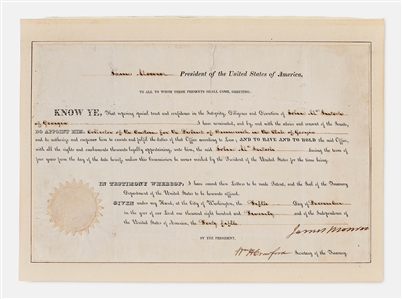 James Monroe President of the United States of America,
TO ALL TO WHOM THESE PRESENTS SHALL COME, GREETING:
KNOW YE, That reposing special trust and confidence in the Integrity, Diligence and Discretion of
of Georgia I have nominated, and by and with the advice and consent of the Senate,
DO APPOINT HIM, Collector of the Customs for the District of in the State of Georgia
and do authorize and empower him to execute and fulfil the duties of that Office according to Law; AND TO HAVE AND TO HOLD the said Office,
with all the rights and emoluments thereunto legally appertaining, unto him, the said during the term of
four years from the day of the date hereof, unless this Commission be sooner revoked by the President of the United States for the time being.
IN TESTIMONY WHEREOF, I have caused these Letters to be made Patent, and the Seal of the Treasury
Department of the United States to be hereunto affixed.
GIVEN under my Hand, at the City of Washington, the Fifth Day of December
in the year of our Lord one thousand eight hundred and Twenty and of the Independence of
the United States of America, the Forty fifth.
James Monroe
BY THE PRESIDENT.
Wm H Crawford Secretary of the Treasury.